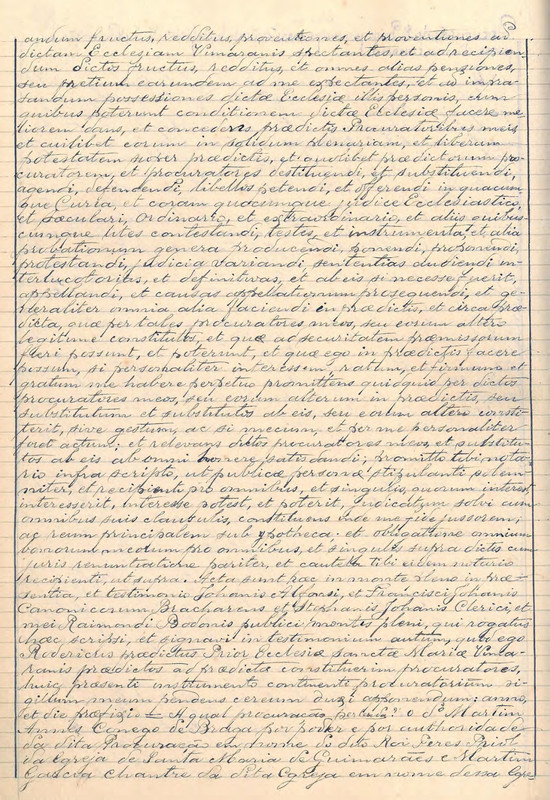 andum fructus, redditus, proventiones, et proventiones ad
dictam Ecclesiam Vimaranis spectantes, et ad recipien-
dum dictos fructus, redditus, et omnes alias pensiones,
seu pretium earundem ad me expectantes, et ad
sandum possessiones dictæ Ecclesiæ illis personis, cum
quibus poterunt conditionem dictæ Ecclesiæ facere me
liorem dans, et concedens prædictis Procuratoribus meis
et cuilibet eorum in solidum plenariam, et liberam
potestatem super prædictis, et quolibet prædictorum pro-
curatorem, et procuratores destituendi, et substituendi,
agendi, defendendi, libellos petendi, et offerendi in quacum
que Curia, et coram quocumque judice Ecclesiastico,
et sæculari, Ordinario, et extraordinario, et aliis quibus-
cumque lites contestandi, testes, et instrumenta, et alia
probationum genera producendi, ponendi, proponendi,
protestandi, judicia variandi sententias audiendi in-
terlocutorias, et definitivas, et ab eis si necesse fuerit,
appellandi, et causas appellationum prosequendi, et ge-
neraliter omnia alia faciendi in prædictis, et circa præ-
dicta, quæ per tales procuratores meos, seu eorum alterum
legitime constitutos, et quæ ad securitatem præmissorum
fieri possunt, et poterunt, et quæ ego in prædictis facere
possum, si personaliter interessem, ratum, et firmum et
gratum me habere perpetuo promittens quidquid per dictos
procuratores meos, seu eorum alterum in prædictis, seu
substitutum et substitutos ab eis, seu eorum altero
terit, sive gestum, ac si mecum, et per me personaliter
foret actum: et relevans dictos procuratores meos, et substitu-
tos ab eis ab omni onere satisdandi; promitto tibi nota-
rio infra scripto, ut publicæ personæ stipulanti solem-
niter, et recipienti pro omnibus, et singulis, quorum interest
interesserit, interesse potest, et poterit, judicatum solvi cum
omnibus suis claubulis, constituens inde me fide jussorem;
ac reum principalem sub ypotheca: et obligatione omnium
bonorum meorum pro omnibus, et singulis supra dictis cum
juris renuntiatione pariter, et cautela tibi eidem notario
recipienti, ut supra. Acta sunt hæc in monte pleno in præ-
sentia, et testimonio Johanis Alfonsi, et Francisci Johanis
Canonicorum Bracharens et Stephanis Johanis Clerici, et
mei Raimondi Bodonis publici montes pleni, qui rogatus
hæc scripsi, et signavi in testimonium autum, quo ego
Rodericus prædictus Prior Ecclesiæ Sanctæ Mariæ Vima-
ranis prædictos ad prædicta constituerim procuratores,
huic præsenti instrumento continente procuratorium si-
gillum meum pendens cereum duxi apponendum; anno,
et die præfixio = A qual procuração o dº Martim
Annes Conego de Braga por poder e por authoridade
da dita Procuração em nome do dito Roi Peres Priol
da Egreja de Santa Maria de Guimarães e Martim
Garcia Chantre da dita Egreja em nome dessa Egre